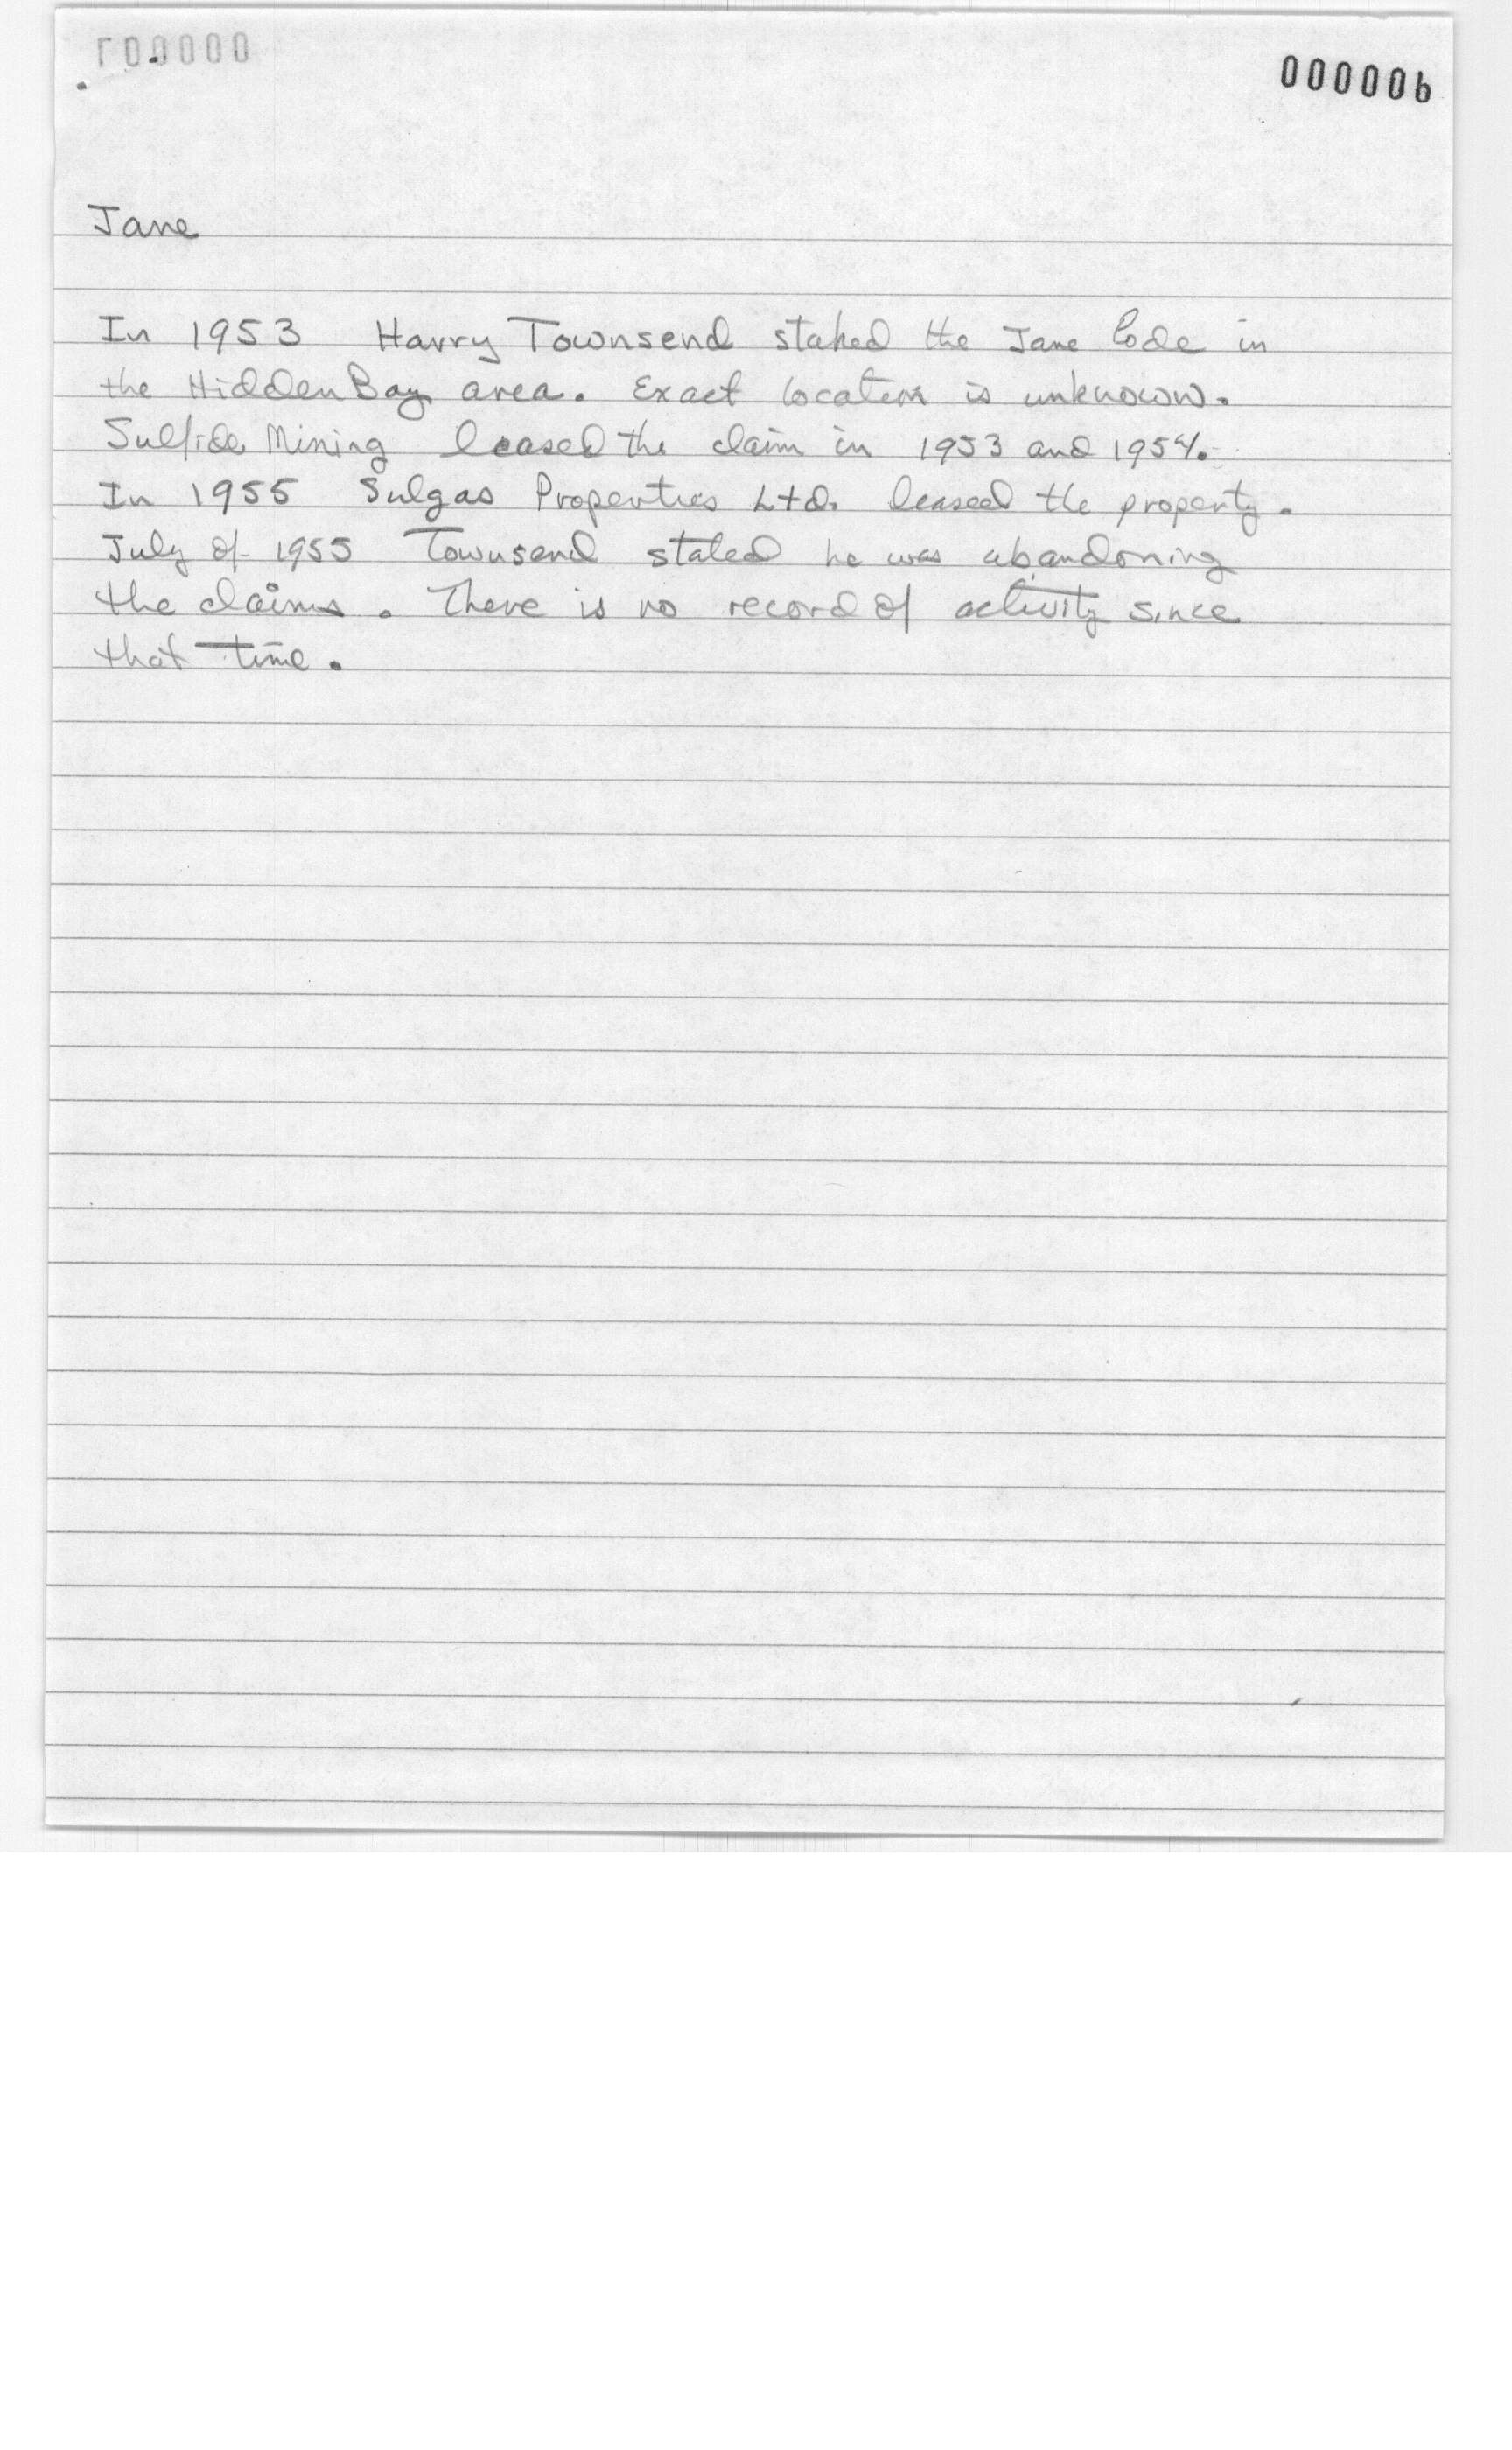 000006
Jane
In 1953 Harry Townsend staked the Jane Lode in
the Hidden Bay area. Exact location is unknown.
Sulfide Mining leased the claim in 1953 and 1954.
In 1955 Sulgas Properties Ltd. leased the property.
July of 1955 Townsend stated he was abandoning
the claims. There is no record of activity since
that time.